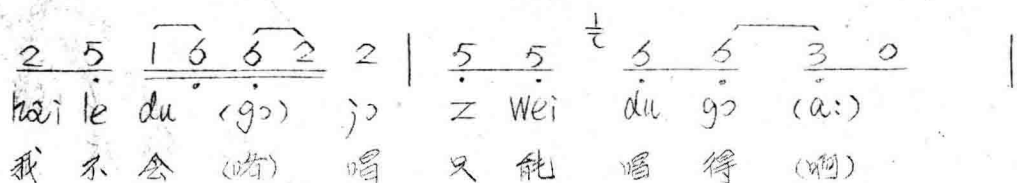 2 5 1 6 6 2 2 | 5 5 6 6 3 0 |
hai le du (gɔ) jɔ z wei du gɔ (a:)
我 不 会 (咯) 唱 只 能 唱 得 (啊)